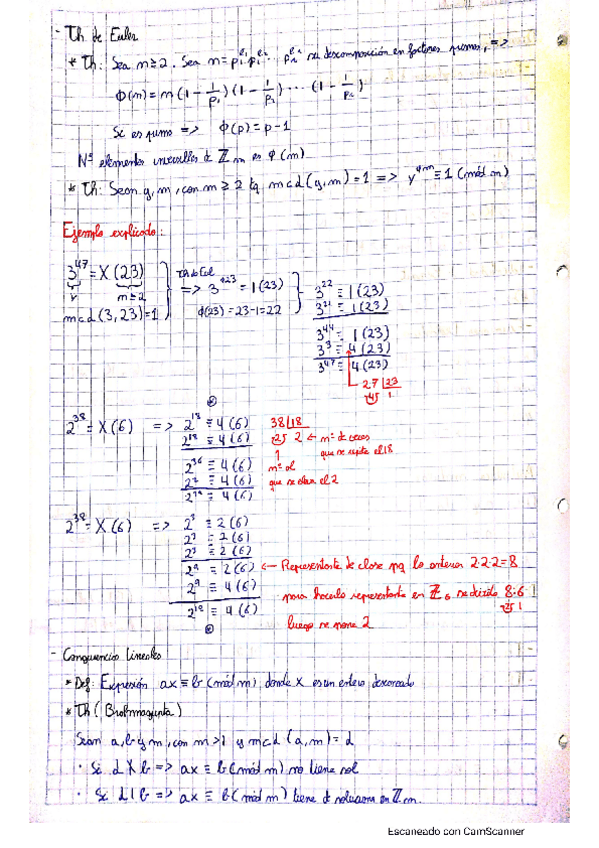 - Th de Euler
* Th: Sea m≥2. Sea m=p₁^e₁ p₂^e₂ ... pᵣ^eᵣ su descomposición en factores primos, =>
Φ(m)=m(1-1/p₁)(1-1/p₂)...(1-1/pᵣ)
Si es primo => Φ(p)=p-1
Nº elementos invertibles de ℤm es Φ(m)
* Th: Sean y, m, con m≥2 tq mcd(y,m)=1 => y^φ(m) ≡ 1 (mód m)
Ejemplo explicado:
3^47 ≡ X (23)
y m≥2
mcd(3,23)=1
=> 3^φ23 ≡ 1(23)
φ(23)=23-1=22
3^22 ≡ 1(23)
3^21 ≡ 1(23)
3^44 ≡ 1(23)
3^3 ≡ 4(23)
3^47 ≡ 4(23)
27 |23
45 1
2^38 ≡ X(6) =>
2^18 ≡ 4(6)
2^18 ≡ 4(6)
2^36 ≡ 4(6)
2^2 ≡ 4(6)
≡ 4(6)
38|18
2 <- nº de veces
que se repite el 18
nº al
que se eleva el 2
2^38 ≡ X(6) =>
2^3 ≡ 2(6)
2^3 ≡ 2(6)
2^3 ≡ 2(6)
2^9 ≡ 2(6) <- Representante de clase pq lo anterior 2·2·2=8
2^9 ≡ 4(6) para hacerlo representante en ℤ₆ se divide 8:6
2^18 ≡ 4(6) luego se pone 2
- Congruencias Lineales
* Def: Expresión ax≡b(mód m) donde X es un entero desconocido
* Th (Brahmagupta)
Sean a,b y m, con m>1 y mcd(a,m)=d
· Si d∤b => ax≡b(mód m) no tiene sol
· Si d|b => ax≡b(mód m) tiene d soluciones en ℤm.
Escaneado con CamScanner